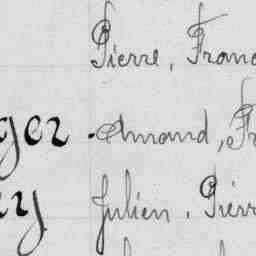 Pierre, Franç
ger. Amand, Fr
ry Julien. Pierr